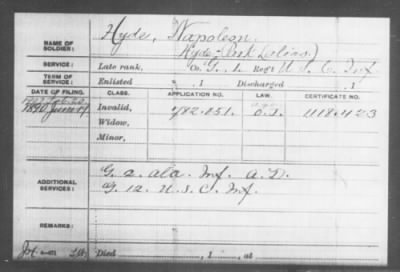 Hyde, Napoleon.
NAME OF SOLDIER:
Hyde (alias)
SERVICE: Late rank, Co. G. 1. Reg't U.S.C. Inf
TERM OF SERVICE: Enlisted , 1 Discharged , 1
DATE OF FILING. CLASS. APPLICATION NO. LAW. CERTIFICATE NO.
1890 June 19 Invalid, 782.051. 1118.423
Widow,
Minor,
ADDITIONAL SERVICES: G. 2. Ala. Inf. A. D.
G. 12. U.S.C. Inf.
REMARKS:
Died , 1 , at